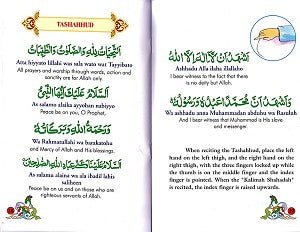 TASHAHHUD
اَلتَّحِيَّاتُ لِلّٰهِ وَالصَّلَوَاتُ وَالطَّيِّبَاتُ
Atta hiyyato lillahi was sala wato wat Tayyibato
All prayers and worship through words, action and
sanctity are for Allah only.
اَلسَّلَامُ عَلَيْكَ اَيُّهَا النَّبِيُّ
As salamo alaika ayyohan nabiyyo
Peace be on you, O Prophet,
وَرَحْمَةُ اللهِ وَبَرَكَاتُهُ
Wa Rahmatullahi wa barakatoho
and Mercy of Allah and His blessings.
اَلسَّلَامُ عَلَيْنَا وَعَلٰى عِبَادِ اللهِ الصَّالِحِيْنَ
As salamo alaina wa ala ibadil lahis
saliheen
Peace be on us and on those who are
righteous servants of Allah.
اَشْهَدُ اَنْ لَّا اِلٰهَ اِلَّا اللهُ
Ashhadu Alla ilaha illallaho
I bear witness to the fact that there
is no deity but Allah.
وَاَشْهَدُ اَنَّ مُحَمَّدًا عَبْدُهُ وَرَسُوْلُهُ
Wa ashhadu anna Muhammadan abduhu wa Rasuluh
And I bear witness that Muhammad is His slave
and messenger.
When reciting the Tashahhud, place the left
hand on the left thigh, and the right hand on the
right thigh, with the three fingers locked up while
the thumb is on the middle finger and the index
finger is pointed. When the "Kalimah Shahadah"
is recited, the index finger is raised upwards.